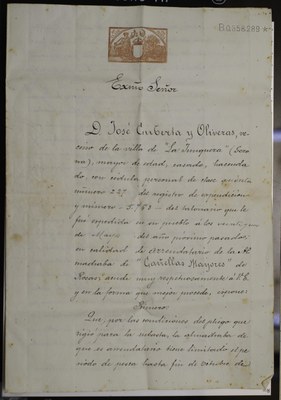 B.0.556.289 *
Exmo Señor
D. José Carbería y Oliveras, ve-
cino de la villa de "La Junquera" (Gero-
na), mayor de edad, casado, hacenda-
do, con cédula personal de clase
número 227 del registro de expedicion
y número 5.783 del talonario que le
fué expedida en su pueblo á los
de Mayo del año próximo pasado,
en calidad de arrendatario de la Al-
madraba de "Cañellas Mayores" de
Rosas, acude muy respetuosamente á V.E.
y en la forma que mejor proceda, expone:
Primero
Que, por las condiciones del pliego que
rigió para la subasta, la almadraba de
que es arrendatario tiene limitado el pe-
ríodo de pesca hasta fin de octubre de